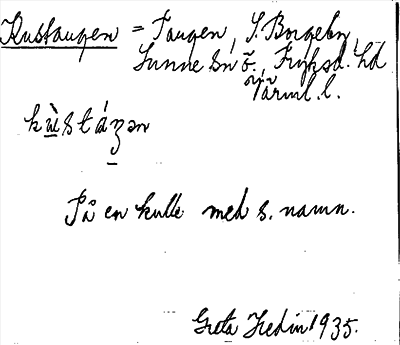 Kustangen = Tangen, S. Borgeby,
Sunne sn o. Fryksd. hd
Värml. l.
kùstáŋən
På en kulle med s. namn.
Greta Hedin 1935.